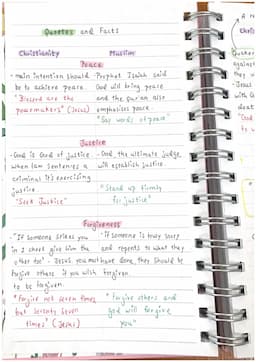 Quotes and Facts
Christianity Muslim
Peace
- main intention should
be to achieve peace.
"Blessed are the
peacemakers" (Jesus)
- Prophet Isaiah said
God will bring peace
and the Qur'an also
emphasises peace
"Say words of peace"
Justice
- God is God of justice.
When law sentences a
criminal it's exercising
justice.
"Seek Justice"
- God the ultimate judge
will establish justice.
"Stand up firmly
for justice"
Forgiveness
- "If someone
1 cheek give him the
other too" - Jesus. you must
forgive others if you wish
to be forgiven.
"forgive not seven times
but seventy seven
times" (Jesus)
- if someone is truly sorry
and repents to what they
have done, they should be
forgiven.
"forgive others and
god will forgive
you"